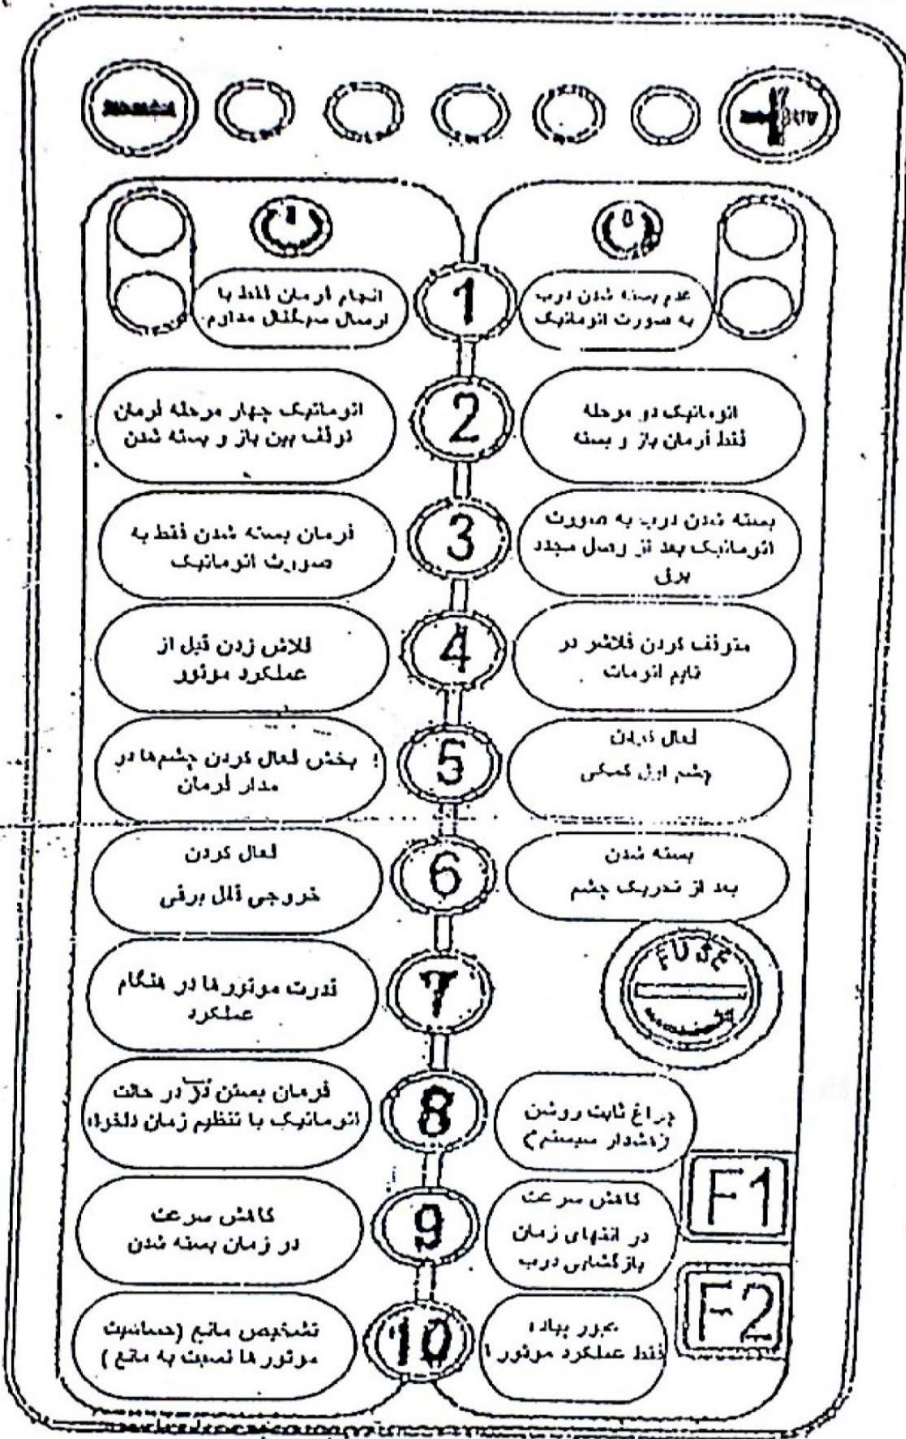 عدم بسته شدن درب
به صورت اتوماتیک
1
انجام فرمان فقط با
ارسال سیگنال مداوم
اتوماتیک دو مرحله
فقط فرمان باز و بسته
2
اتوماتیک چهار مرحله فرمان
توقف بین باز و بسته شدن
بسته شدن درب به صورت
اتوماتیک بعد از وصل مجدد
برق
3
فرمان بسته شدن فقط به
صورت اتوماتیک
متوقف کردن فلاشر در
تایم اتومات
4
فلاش زدن قبل از
عملکرد موتور
فعال کردن
چشم اول کمکی
5
بخش فعال کردن چشم‌ها در
مدار فرمان
بسته شدن
بعد از تحریک چشم
6
فعال کردن
خروجی قفل برقی
FUSE
7
قدرت موتورها در هنگام
عملکرد
چراغ ثابت روشن
(هشدار سیستم)
8
فرمان بستن در در حالت
اتوماتیک با تنظیم زمان دلخواه
F1
کاهش سرعت
در انتهای زمان
بازگشایی درب
9
کاهش سرعت
در زمان بسته شدن
F2
عبور پیاده
فقط عملکرد موتور 1
10
تشخیص مانع (حساسیت
موتورها نسبت به مانع)